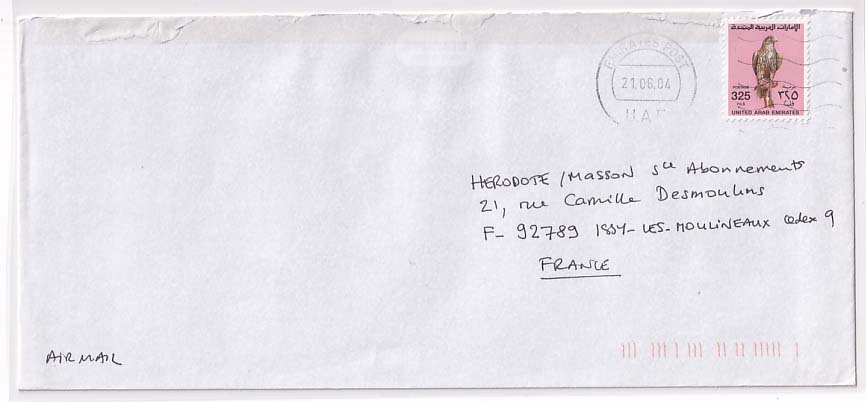 الإمارات العربية المتحدة
EMIRATES POST
21.06.04
UAE
POSTAGE
325
FILS
بريد
٣٢٥
فلس
UNITED ARAB EMIRATES
HERODOTE / MASSON Sce Abonnements
21, rue Camille Desmoulins
F- 92789 ISSY-LES-MOULINEAUX cedex 9
FRANCE
AIR MAIL